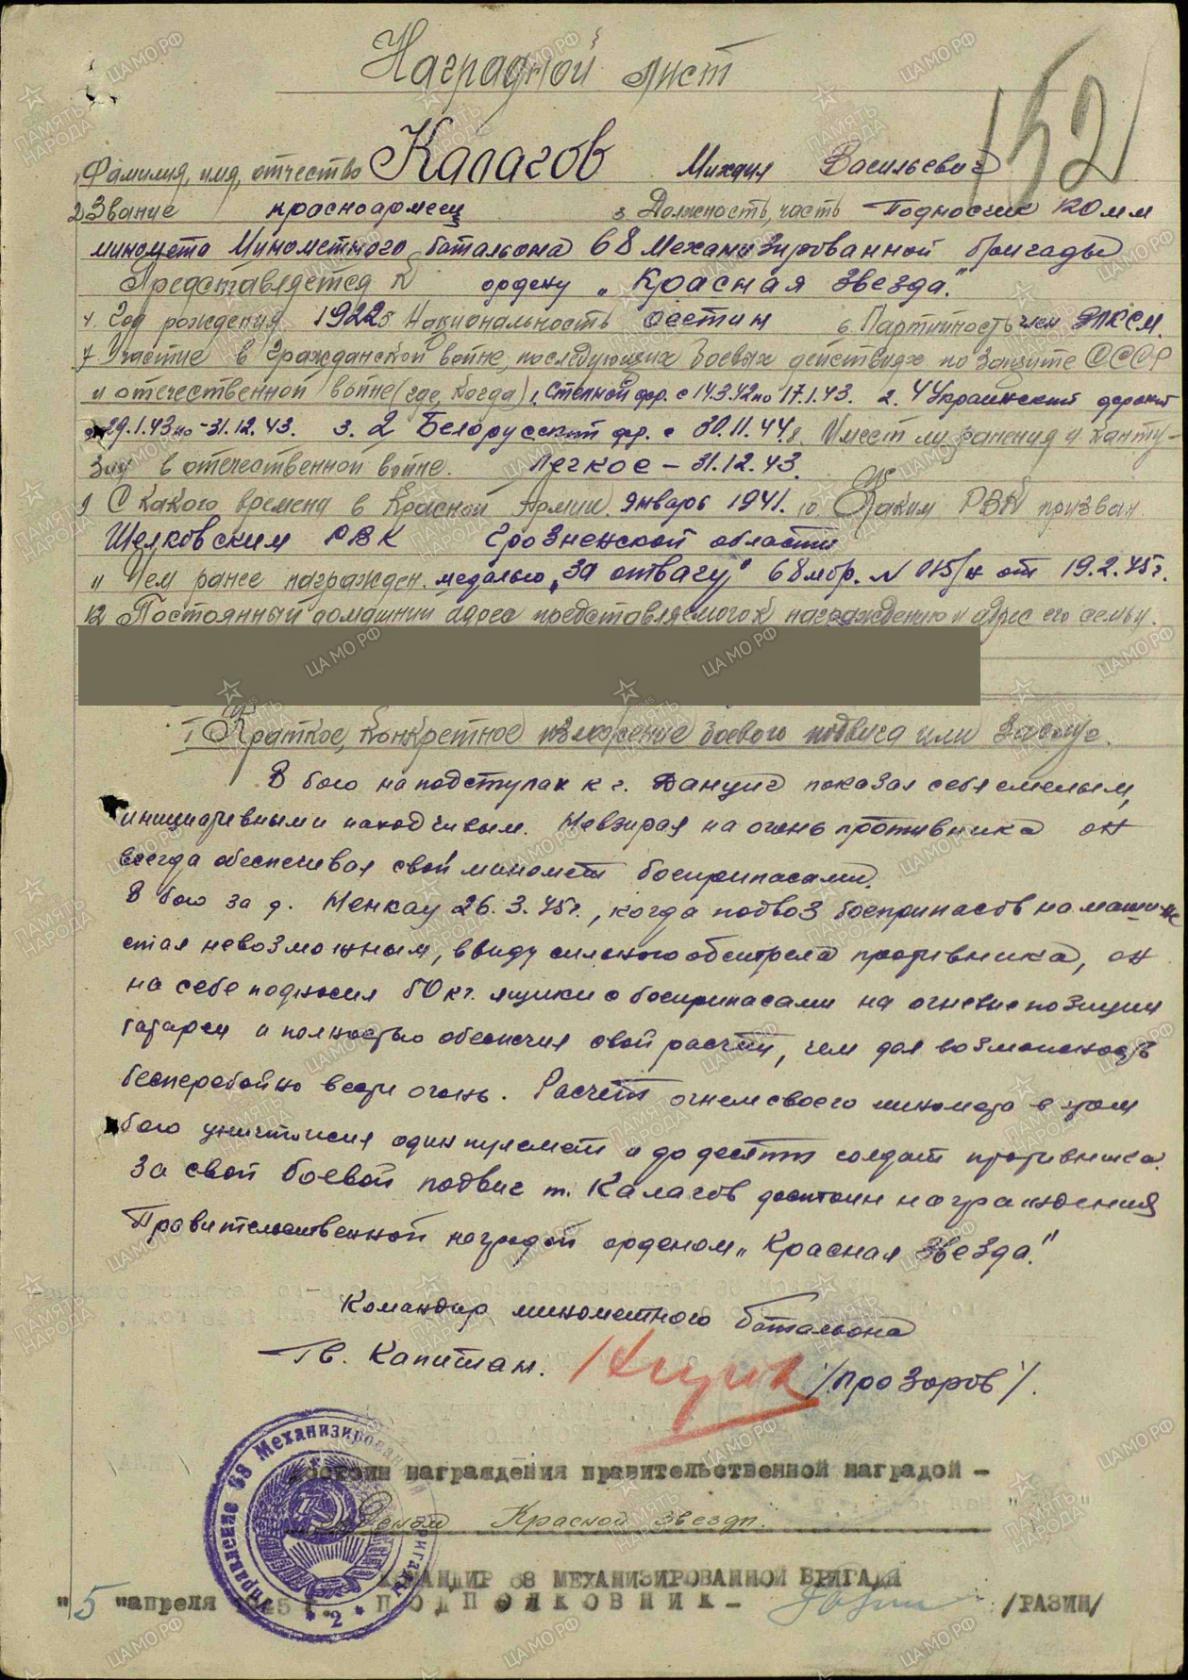 Наградной лист
152
Фамилия, имя, отчество Калагов Михаил Васильевич
2 Звание красноармеец 3 Должность, часть Подносчик 120 мм
миномета Минометного батальона 68 Механизированной бригады
Представляется к ордену „Красная Звезда."
4. Год рождения 1922 5 Национальность осетин 6. Партийность член ВЛКСМ.
7 Участие в гражданской войне, последующих боевых действиях по защите СССР
и отечественной войне (где, когда) 1. Степной фр. с 14.3.42 по 17.1.43. 2. 4 Украинский фронт
с 29.1.43 по - 31.12.43. 3. 2 Белорусский фр. с 30.11.44. 8. Имеет ли ранения и конту-
зии в отечественной войне. Легкое - 31.12.43.
9 С какого времени в Красной Армии. январь 1941. 10. Каким РВК призван
Шелковским РВК Грозненской области
11 Чем ранее награжден. медалью „За отвагу" 68 мбр. N 015/н от 19.2.45 г.
12 Постоянный домашний адрес представляемого к награждению и адрес его семьи.
I Краткое, конкретное изложение боевого подвига или заслуг.
В бою на подступах к г. Данциг показал себя смелым,
инициативным и находчивым. Невзирая на огонь противника он
всегда обеспечивал свой миномет боеприпасами.
В бою за д. Ненкау 26.3.45 г., когда подвоз боеприпасов на машине
стал невозможным, ввиду сильного обстрела противника, он
на себе подносил 50 кг. ящики с боеприпасами на огневые позиции
батареи и полностью обеспечил свой расчет, чем дал возможность
бесперебойно вести огонь. Расчет огнем своего миномета в этом
бою уничтожил один пулемет и до десяти солдат противника.
За свой боевой подвиг т. Калагов достоин награждения
Правительственной наградой орденом „Красная Звезда."
Командир минометного батальона
Гв. Капитан. /Прозоров/.
Управление 68 Механизированной бригады
* 2 *
Достоин награждения правительственной наградой -
Орденом Красной Звезды.
КОМАНДИР 68 МЕХАНИЗИРОВАННОЙ БРИГАДЫ
"5" апреля 1945 г. ПОДПОЛКОВНИК - /РАЗИН/
ПАМЯТЬ НАРОДА
ЦАМО РФ